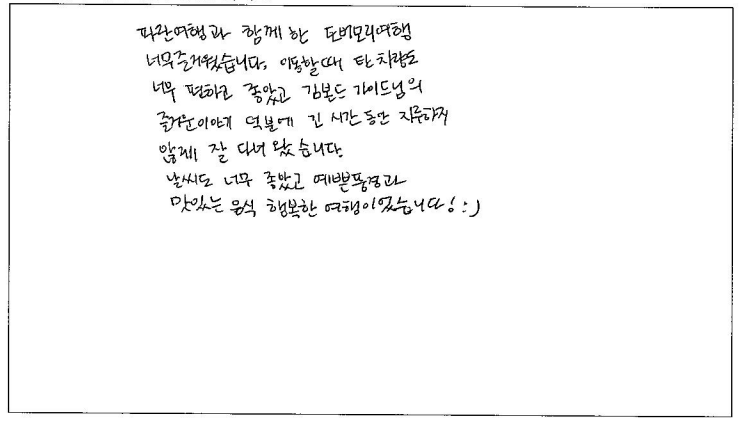 파란여행과 함께 한 토버모리여행
너무즐거웠습니다. 이동할때 탄 차량도
너무 편하고 좋았고 김본드 가이드님의
즐거운이야기 덕분에 긴 시간 동안 지루하지
않게 잘 다녀 왔습니다.
날씨도 너무 좋았고 예쁜풍경과
맛있는 음식 행복한 여행이었습니다! :)